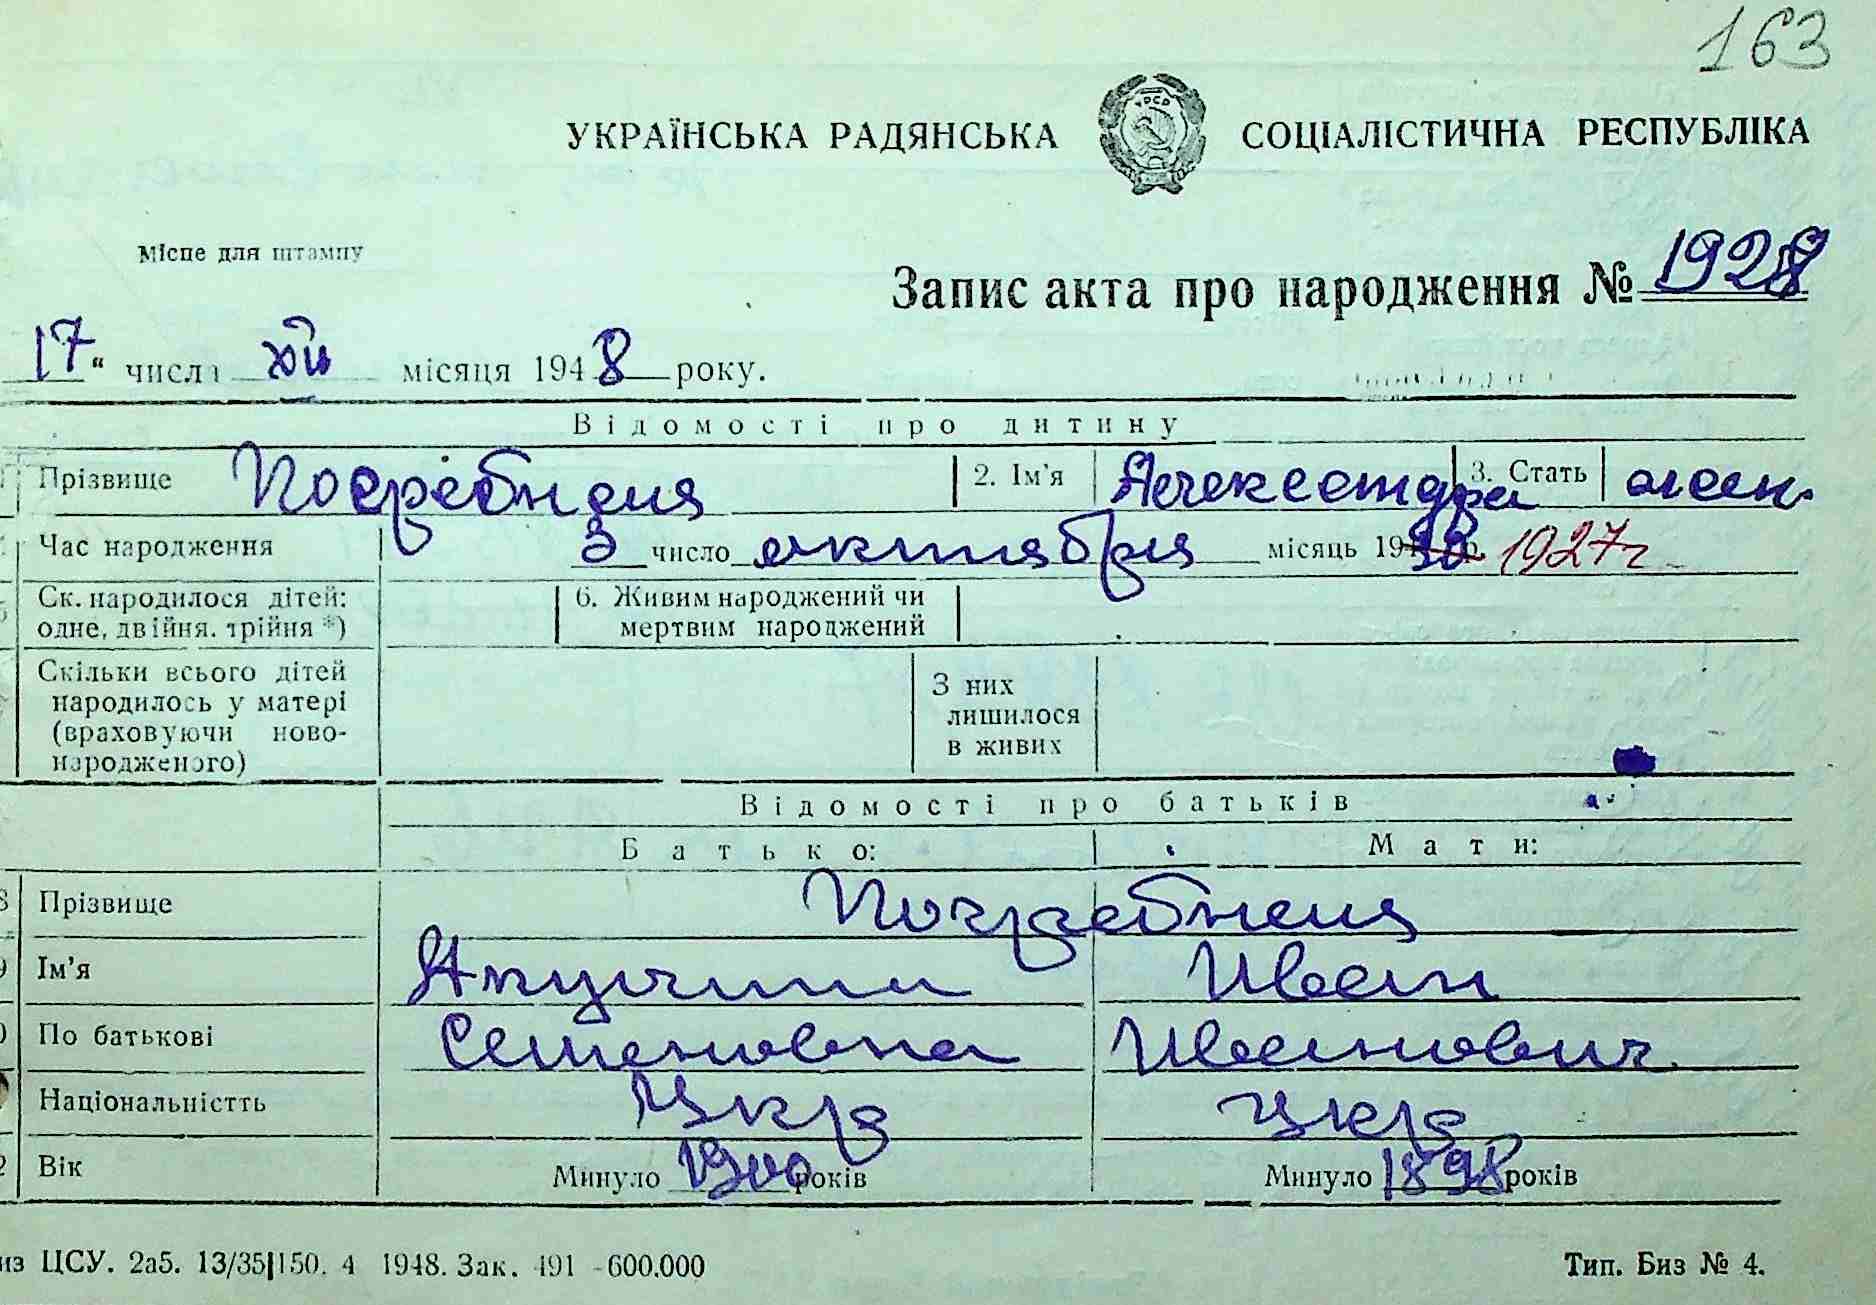 163
УКРАЇНСЬКА РАДЯНСЬКА СОЦІАЛІСТИЧНА РЕСПУБЛІКА
УРСР
Місце для штампу
Запис акта про народження № 1928
17 “ числа XII місяця 1948 року.
Відомості про дитину
Прізвище Погребная 2. Ім’я Александра 3. Стать жен.
Час народження 3 число октября місяць 19 р. 1927 г
Ск. народилося дітей: одне, двійня, трійня *) 6. Живим народжений чи мертвим народжений
Скільки всього дітей народилось у матері (враховуючи новонародженого) З них лишилося в живих
Відомості про батьків
Батько: Мати:
Прізвище Погребная
Ім’я Акулина Иван
По батькові Семеновна Иванович
Національністть Укр Укр
Вік Минуло 1900 років Минуло 1898 років
из ЦСУ. 2а5. 13/35|150. 4 1948. Зак. 491 -600.000 Тип. Биз № 4.